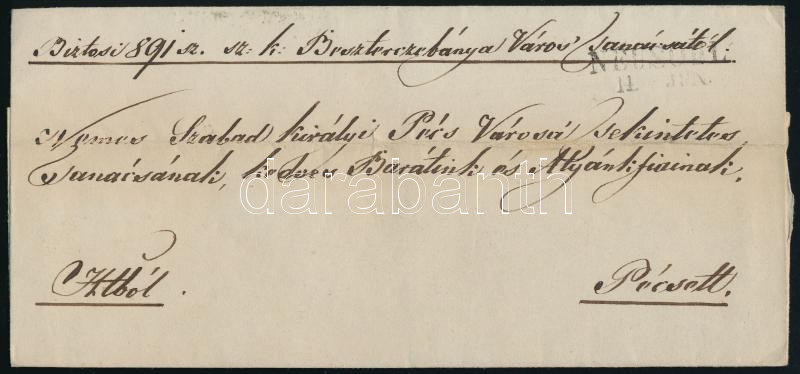 Biztosi 891 sz. sz: k: Beszterczebánya Város' Tanácsától.
NEUSOHL
11. JUN.
Nemes Szabad királyi Pécs Városa Tekintetes
Tanácsának, kedves Barátink és Atyánkfiainak.
darabanth
Itból.
Pécsett.